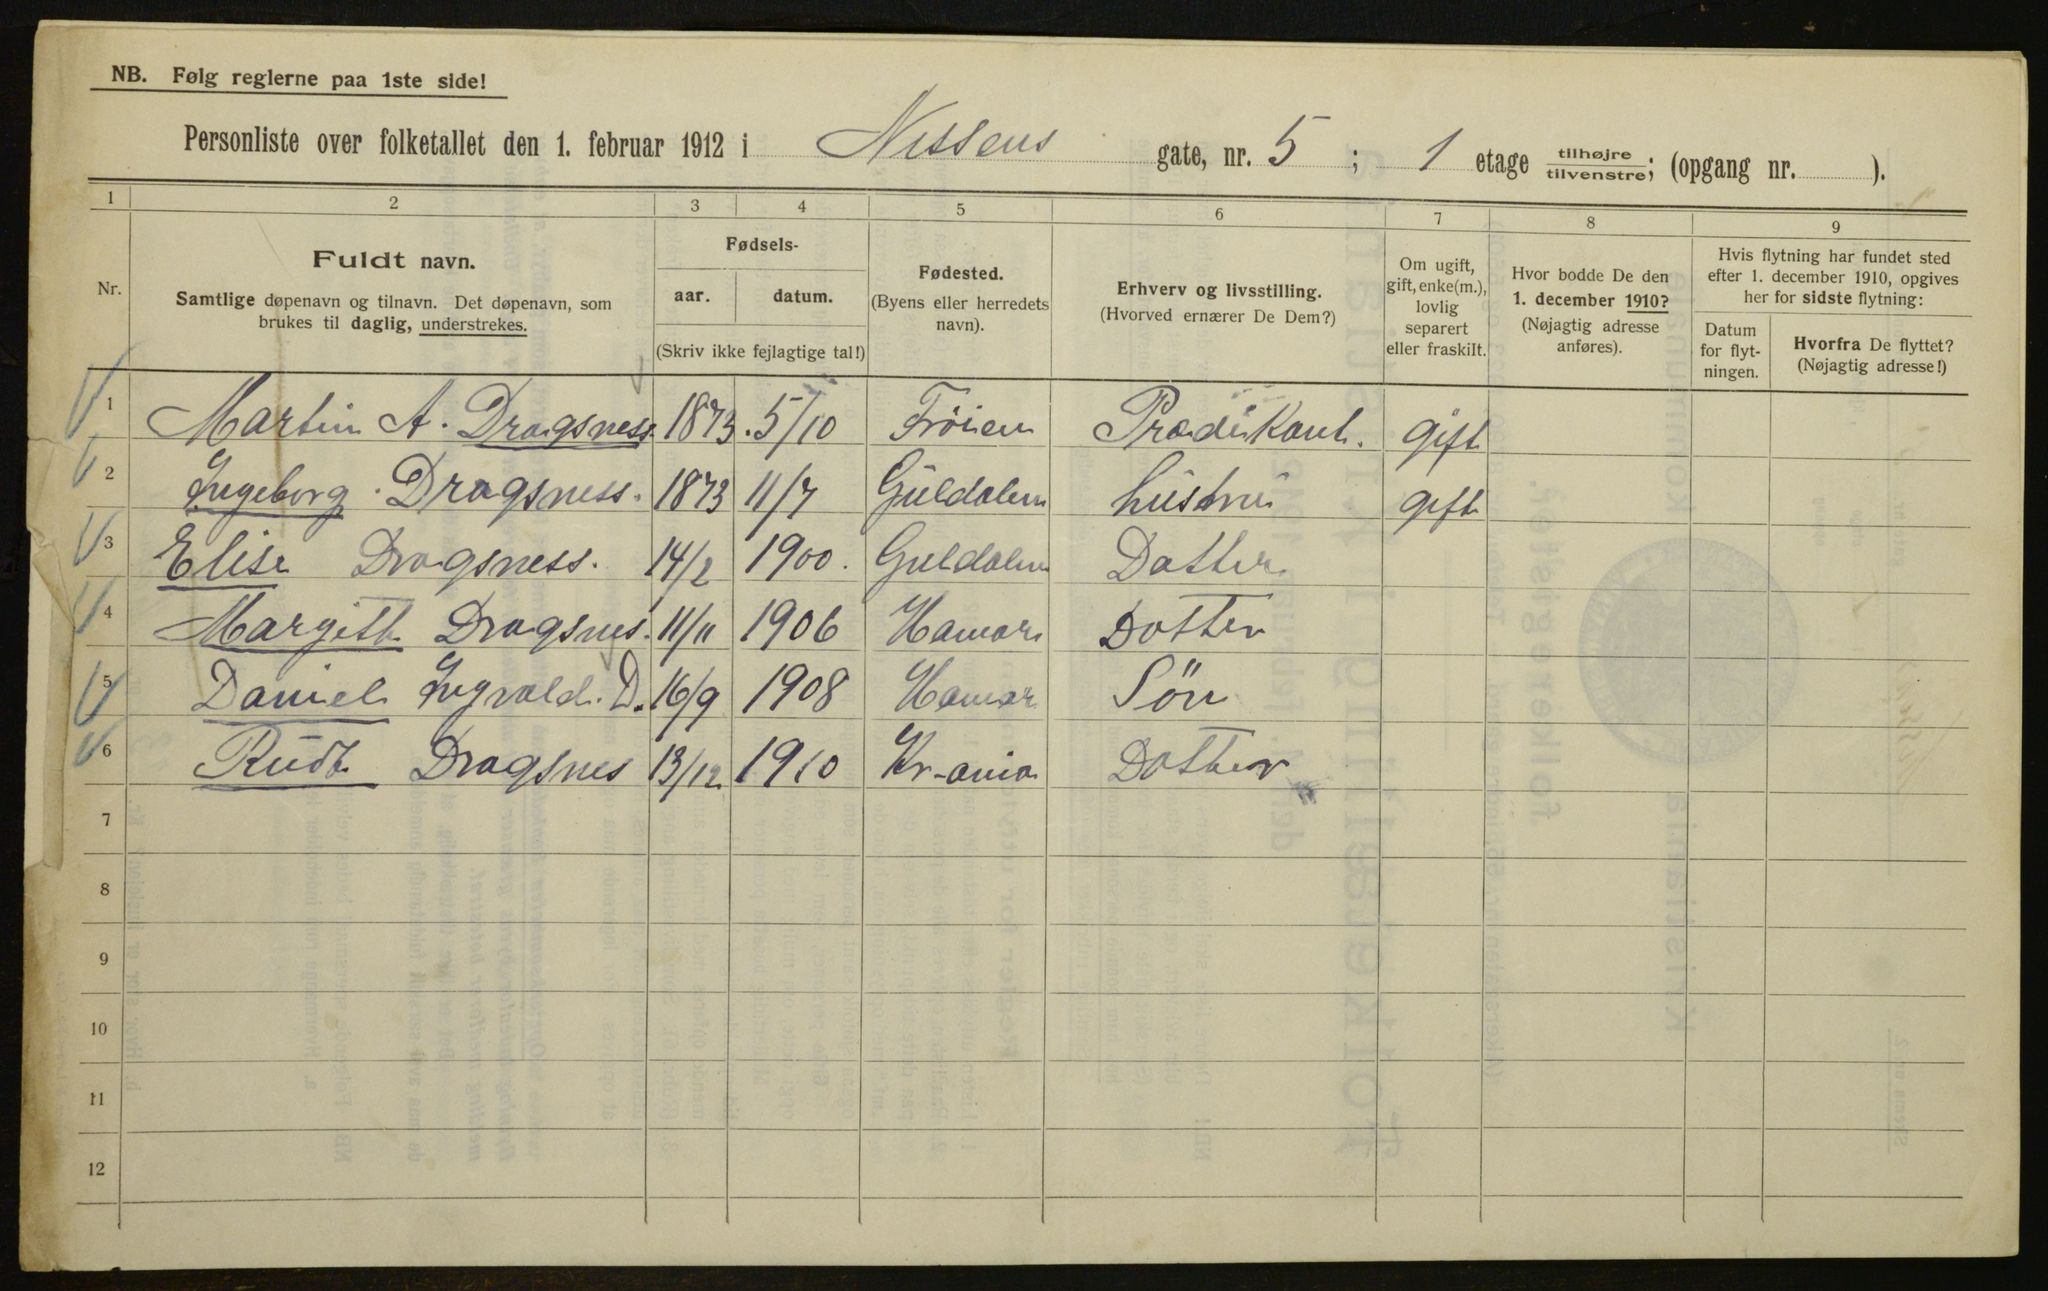 NB. Følg reglerne paa 1ste side!
Personliste over folketallet den 1. februar 1912 i Nissens gate, nr. 5 ; 1 etage tilhøjre tilvenstre; (opgang nr. ).
1 2 3 4 5 6 7 8 9
Nr.
Fuldt navn.
Samtlige døpenavn og tilnavn. Det døpenavn, som
brukes til daglig, understrekes.
Fødsels-
aar. datum.
(Skriv ikke fejlagtige tal!)
Fødested.
(Byens eller herredets
navn).
Erhverv og livsstilling.
(Hvorved ernærer De Dem?)
Om ugift,
gift, enke(m.),
lovlig
separert
eller fraskilt.
Hvor bodde De den
1. december 1910?
(Nøjagtig adresse
anføres).
Hvis flytning har fundet sted
efter 1. december 1910, opgives
her for sidste flytning:
Datum
for flyt-
ningen.
Hvorfra De flyttet?
(Nøjagtig adresse!)
1 Martin A. Dragsness 1873. 5/10 Frøien Prædikant. gift
2 Ingeborg Dragsness. 1873 11/7 Guldalen hustru gift
3 Elise Dragsness. 14/2 1900. Guldalen Datter
4 Margith Dragsnes. 11/11 1906 Hamar Dotter
5 Daniel Ingvald. D. 16/9 1908 Hamar Sön
6 Rudt Dragsnes 13/12 1910 Kr-ania Dotter
7
8
9
10
11
12